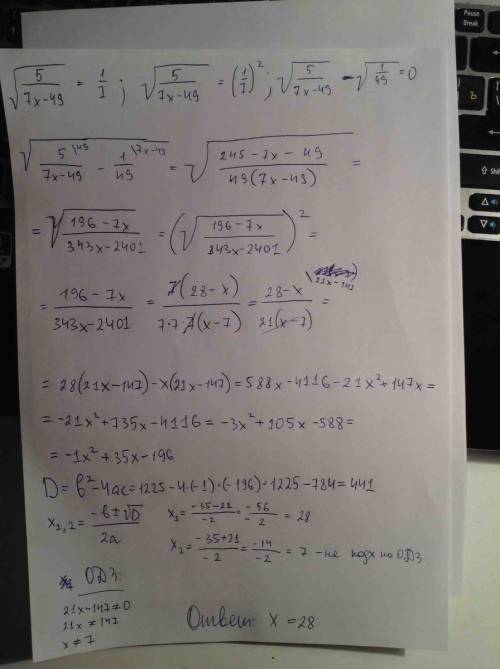 √(5/(7x-49)) = 1/7 ; √(5/(7x-49)) = (1/7)² ; √(5/(7x-49)) - √(1/49) = 0
√(5\49/(7x-49) - 1\7x-49/49) = √((245-7x-49)/(49(7x-49))) =
= √((196-7x)/(343x-2401)) = (√((196-7x)/(343x-2401)))² =
= (196-7x)/(343x-2401) = 7(28-x)/(7·7·7(x-7)) = (28-x)/(21(x-7)) \21x-147 =
= 28(21x-147)-x(21x-147)=588x-4116-21x²+147x=
= -21x²+735x-4116=-3x²+105x-588=
= -1x²+35x-196
D= b²-4ac=1225-4·(-1)·(-196)=1225-784=441
x₁,₂= (-b±√D)/2a x₁= (-35-21)/-2 = -56/-2 = 28
x₂= (-35+21)/-2 = -14/-2 = 7 -не подх по ОДЗ.
ОДЗ:
21x-147≠0
21x≠147
x≠7
Ответ: x=28
Pause
Break
Shift